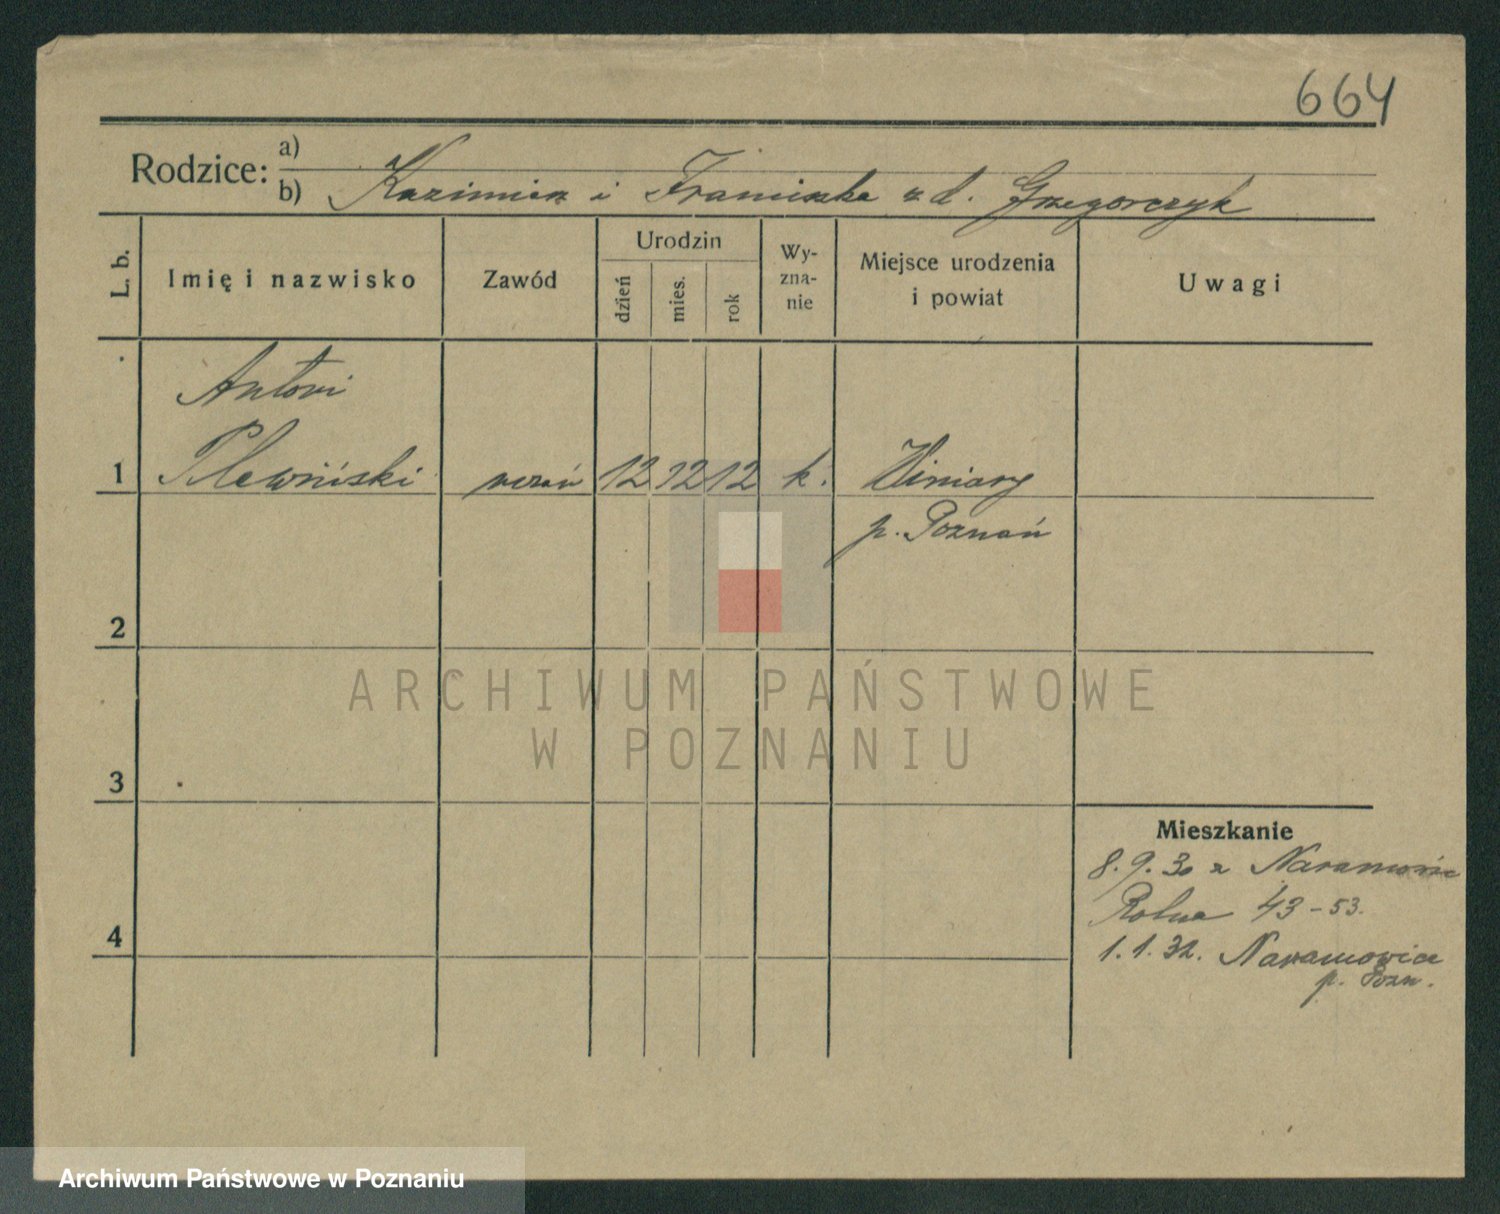 664
Rodzice: a)
b) Kazimierz i Franciszka z d. Grzegorczyk
L. b. Imię i nazwisko Zawód Urodzin dzień mies. rok Wy-zna-nie Miejsce urodzenia i powiat Uwagi
Antoni
1 Plewiński uczeń 12 12 12 k. Winiary
p. Poznań
2
ARCHIWUM PAŃSTWOWE
W POZNANIU
3
Mieszkanie
8.9.30 z Naramowic
Rolna 43-53.
4
1.1.32. Naramowice
p. Pozn.
Archiwum Państwowe w Poznaniu